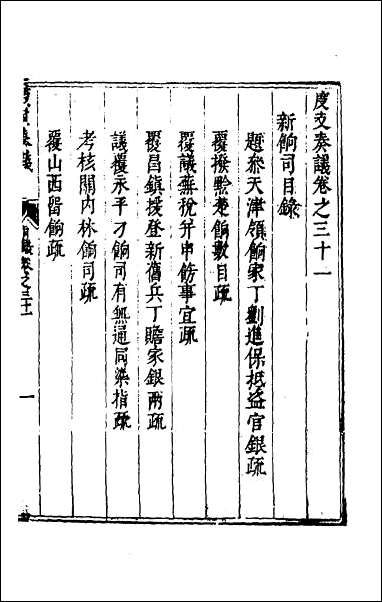 度支奏議卷之三十一
新餉司目錄
題參天津領餉家丁劉進保抵盜官銀疏
覆撥黔楚餉數目疏
覆議蕪稅并申飭事宜疏
覆昌鎮援登新舊兵丁贍家銀兩疏
議覆永平刁餉司有無通同染指疏
考核關內林餉司疏
覆山西留餉疏
卷之三十一
一